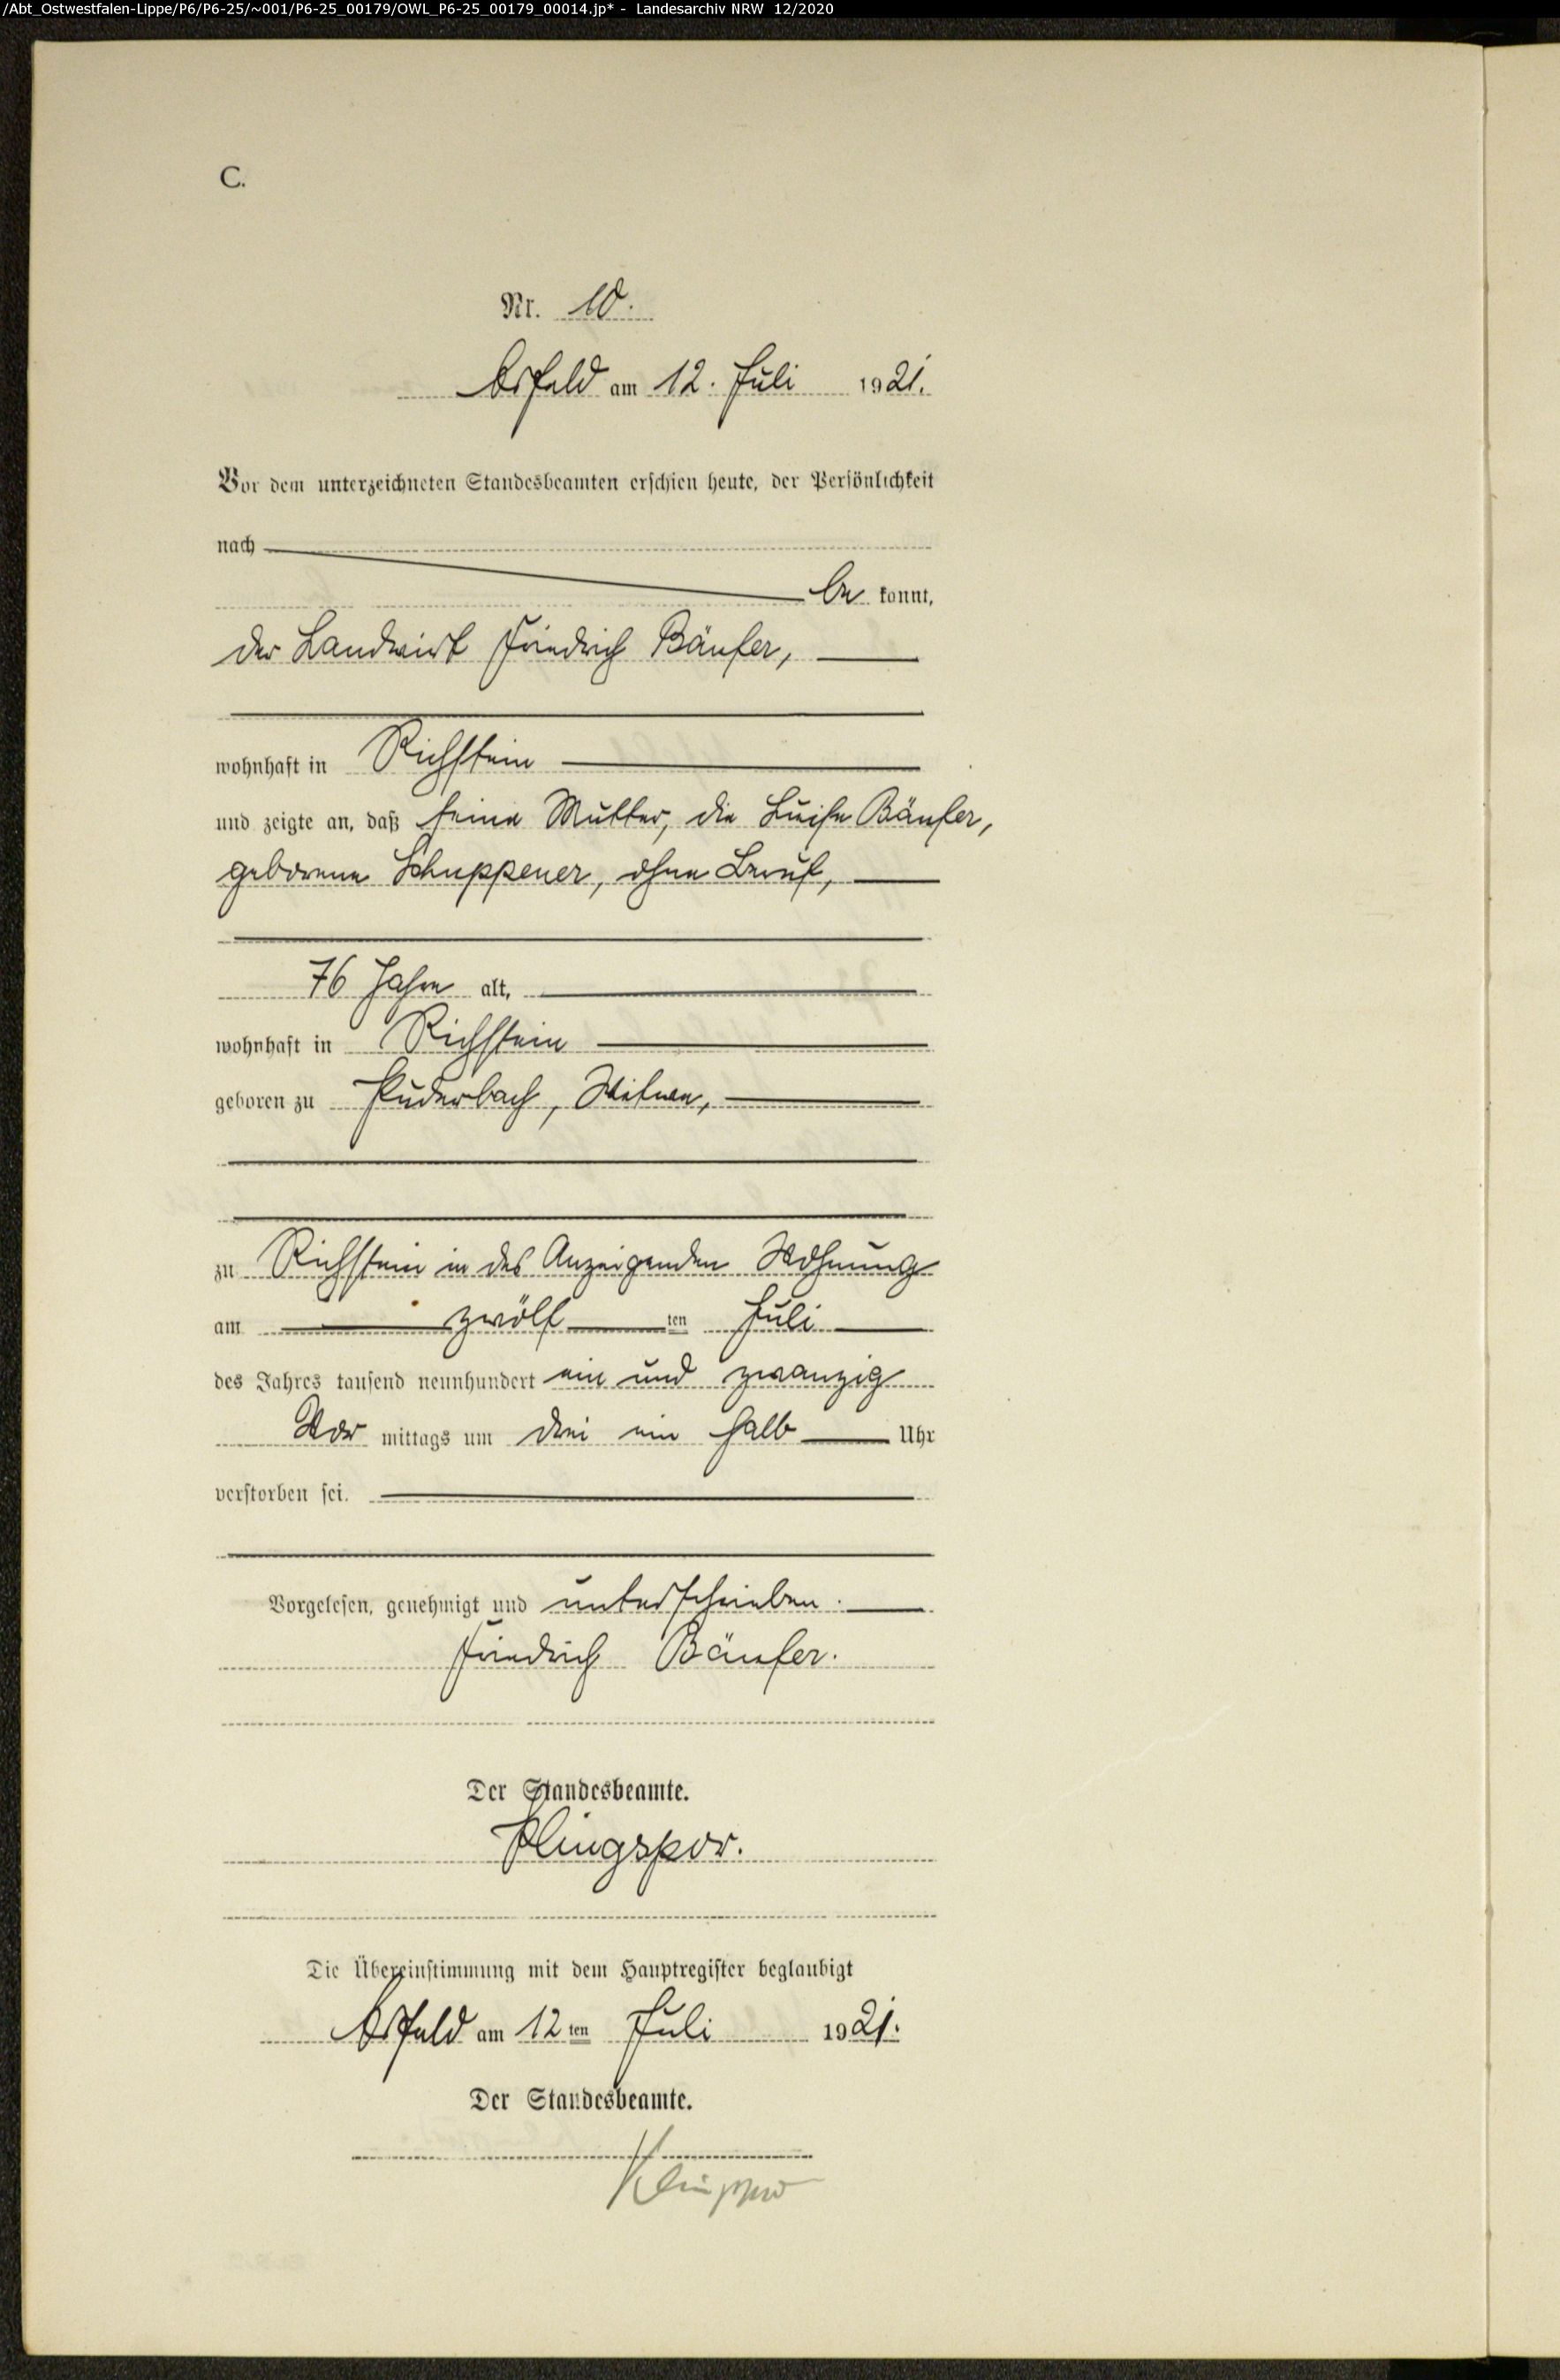 /Abt_Ostwestfalen-Lippe/P6/P6-25/~001/P6-25_00179/OWL_P6-25_00179_00014.jp* - Landesarchiv NRW 12/2020
C.
Nr. 10.
Arfeld am 12. Juli 1921.
Vor dem unterzeichneten Standesbeamten erschien heute, der Persönlichkeit
nach
be kannt,
der Landwirt Friedrich Bäufer,
wohnhaft in Richstein
und zeigte an, daß seine Mutter, die Luise Bäufer,
geborene Schuppener, ohne Beruf,
76 Jahre alt,
wohnhaft in Richstein
geboren zu Puderbach, Witwe,
zu Richstein in des Anzeigenden Wohnung
am zwölf ten Juli
des Jahres tausend neunhundert ein und zwanzig
Vor mittags um drei ein halb Uhr
verstorben sei.
Vorgelesen, genehmigt und unterschrieben.
Friedrich Bäufer.
Der Standesbeamte.
Klingspor.
Die Übereinstimmung mit dem Hauptregister beglaubigt
Arfeld am 12 ten Juli 1921.
Der Standesbeamte.
Klingspor